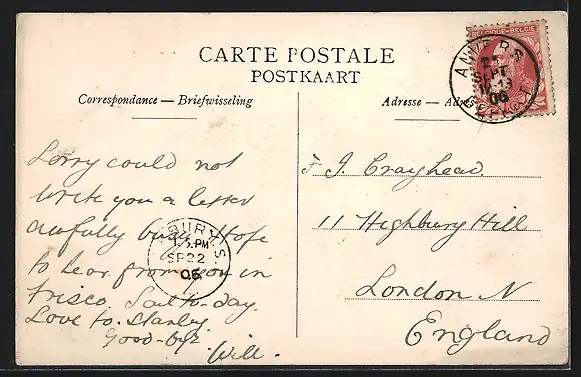 CARTE POSTALE
POSTKAART
Correspondance — Briefwisseling
Adresse — Adres
BELGIQUE-BELGIË
ANVERS
21
SEPT
06
DEPART
Sorry could not
write you a letter
awfully busy. Hope
to hear from you in
Frisco. Sail to-day.
Love to Stanley
Good-bye
Will.
BURY. S.
5. PM
SP 22
06
J. Crayhead.
11 Highbury Hill
London N
England